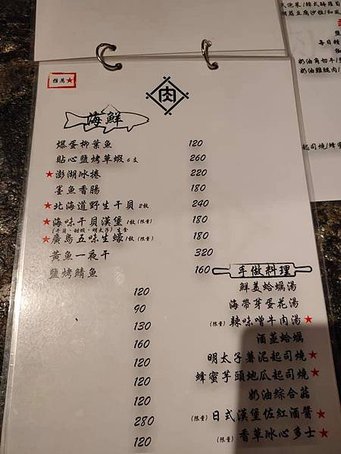 推薦★
肉
海鮮
爆蛋柳葉魚 120
貼心鹽烤草蝦6支 260
★澎湖冰捲 220
墨魚香腸 180
★北海道野生干貝2粒 240
★海味干貝漢堡1粒(限量) 180
★廣島五味生蠔1粒(限量) 180
黃魚一夜干 320
鹽烤鯖魚 160
手做料理
120 鮮美蛤蠣湯
90 海帶芽蛋花湯
130 (限量)辣味噌牛肉湯★
160 酒蒸蛤蠣
120 明太子薯泥起司燒★
120 蜂蜜芋頭地瓜起司燒★
120 奶油綜合菇
280 (限量)日式漢堡佐紅酒醬★
120 (限量)香草冰心多士★